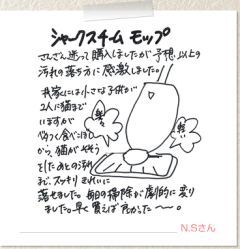 シャークスチーム モップ
さんざん迷って購入しましたが予想以上の
汚れの落ち方に感激しました!
我家には小さな子供が
2人に猫まで
いますが
やつらの食べこぼし
から、猫がそそう
をしたあとの汚れ
まで、スッキリきれいに
落せました。毎日の掃除が劇的に変り
ました。早く買えば良かった〜〜。
N.Sさん